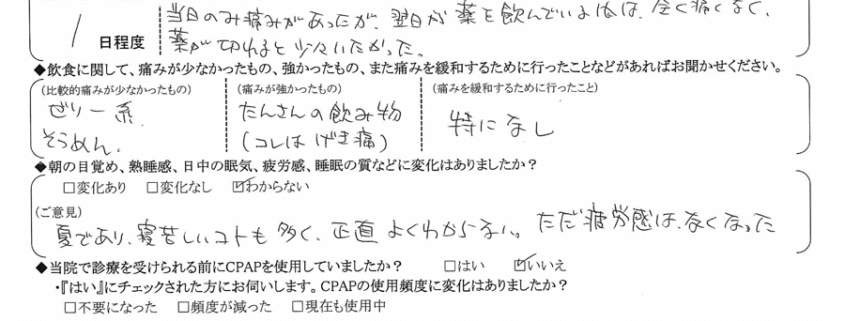 当日のみ痛みがあったが、翌日から薬を飲んでいる間は、全く痛くなく、
1 日程度 薬が切れると少々いたかった。
◆飲食に関して、痛みが少なかったもの、強かったもの、また痛みを緩和するために行ったことなどがあればお聞かせください。
(比較的痛みが少なかったもの) (痛みが強かったもの) (痛みを緩和するために行ったこと)
ゼリー系 たんさんの飲み物 特になし
そうめん. (コレは げき痛)
◆朝の目覚め、熟睡感、日中の眠気、疲労感、睡眠の質などに変化はありましたか?
□変化あり □変化なし ☑わからない
(ご意見)
夏であり、寝苦しいコトも多く、正直よくわからない。ただ疲労感は、なくなった
◆当院で診療を受けられる前にCPAPを使用していましたか? □はい ☑いいえ
・『はい』にチェックされた方にお伺いします。CPAPの使用頻度に変化はありましたか?
□不要になった □頻度が減った □現在も使用中